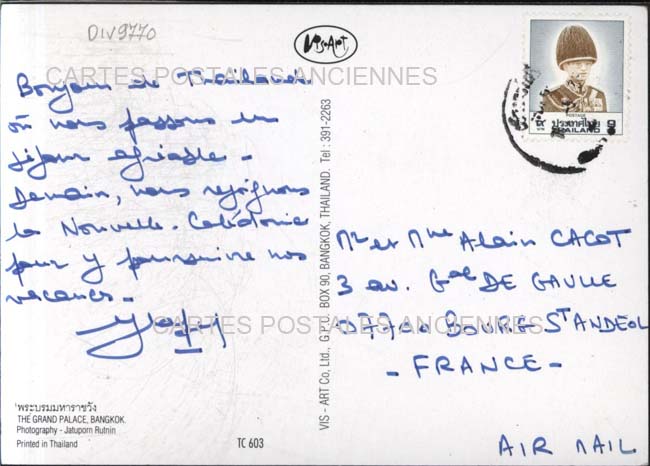 DIV9770
Vis-Art
CARTES POSTALES ANCIENNES
Bonjour de Thaïlande
où nous passons un
séjour agréable -
Demain, nous rejoignons
la Nouvelle-Calédonie
pour y poursuivre nos
vacances -
CARTES POSTALES ANCIENNES
พระบรมมหาราชวัง
THE GRAND PALACE, BANGKOK.
Photography - Jatuporn Rutnin
Printed in Thailand
TC 603
VIS - ART Co, Ltd., G.P.O. BOX 90, BANGKOK, THAILAND. Tel : 391-2263
POSTAGE
ประเทศไทย
THAILAND
Mr et Mme Alain CACOT
3 av. Gal DE GAULLE
07700 BOURG ST ANDEOL
- FRANCE -
AIR MAIL